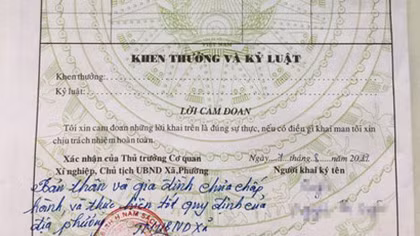 KHEN THƯỞNG VÀ KỶ LUẬT
Khen thưởng:
Kỷ luật:
LỜI CAM ĐOAN
Tôi xin cam đoan những lời khai trên là đúng sự thực, nếu có điều gì khai man tôi xin
chịu trách nhiệm hoàn toàn.
Xác nhận của Thủ trưởng Cơ quan
Xí nghiệp, Chủ tịch UBND Xã,Phường
Ngày tháng 20
Người khai ký tên
Bản thân và gia đình chưa chấp
hành, và thực hiện tốt quy định của
địa phương
TM UBND xã
NAM SÁCH